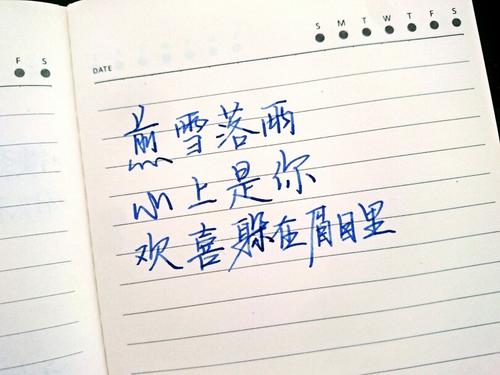 F S
S M T W T F S
DATE
煎雪落雨
心上是你
欢喜躲在眉目里